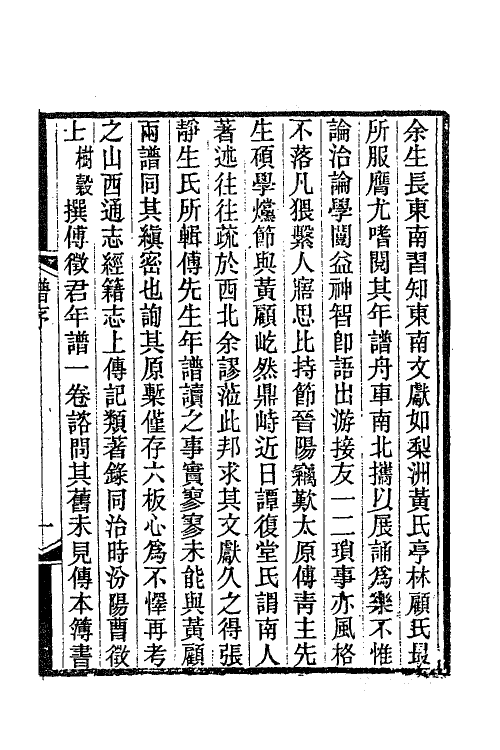 余生長東南習知東南文獻如梨洲黃氏亭林顧氏最
所服膺尤嗜閱其年譜舟車南北攜以展誦為樂不惟
論治論學闓益神智卽語出游接友一二瑣事亦風格
不落凡猥繫人寤思比持節晉陽竊歎太原傅青主先
生碩學爟節與黃顧屹然鼎峙近日譚復堂氏謂南人
著述往往疏於西北余謬蒞此邦求其文獻久之得張
靜生氏所輯傅先生年譜讀之事實寥寥未能與黃顧
兩譜同其縝密也詢其原槧僅存六板心為不懌再考
之山西通志經籍志上傳記類著錄同治時汾陽曹徵
上樹穀撰傅徵君年譜一卷諮問其舊未見傳本簿書
譜序
一